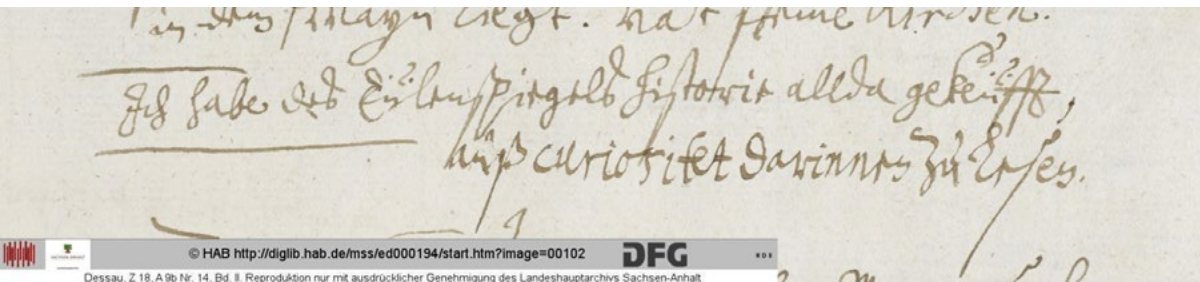 in dem Mayn liegt. hat seine
Ich habe des Eülenspiegels historie allda gekeüfft,
auß curiositet darinnen zu lesen.
© HAB http://diglib.hab.de/mss/ed000194/start.htm?image=00102 DFG
Dessau, Z 18, A 9b Nr. 14, Bd. II. Reproduktion nur mit ausdrücklicher Genehmigung des Landeshauptarchivs Sachsen-Anhalt